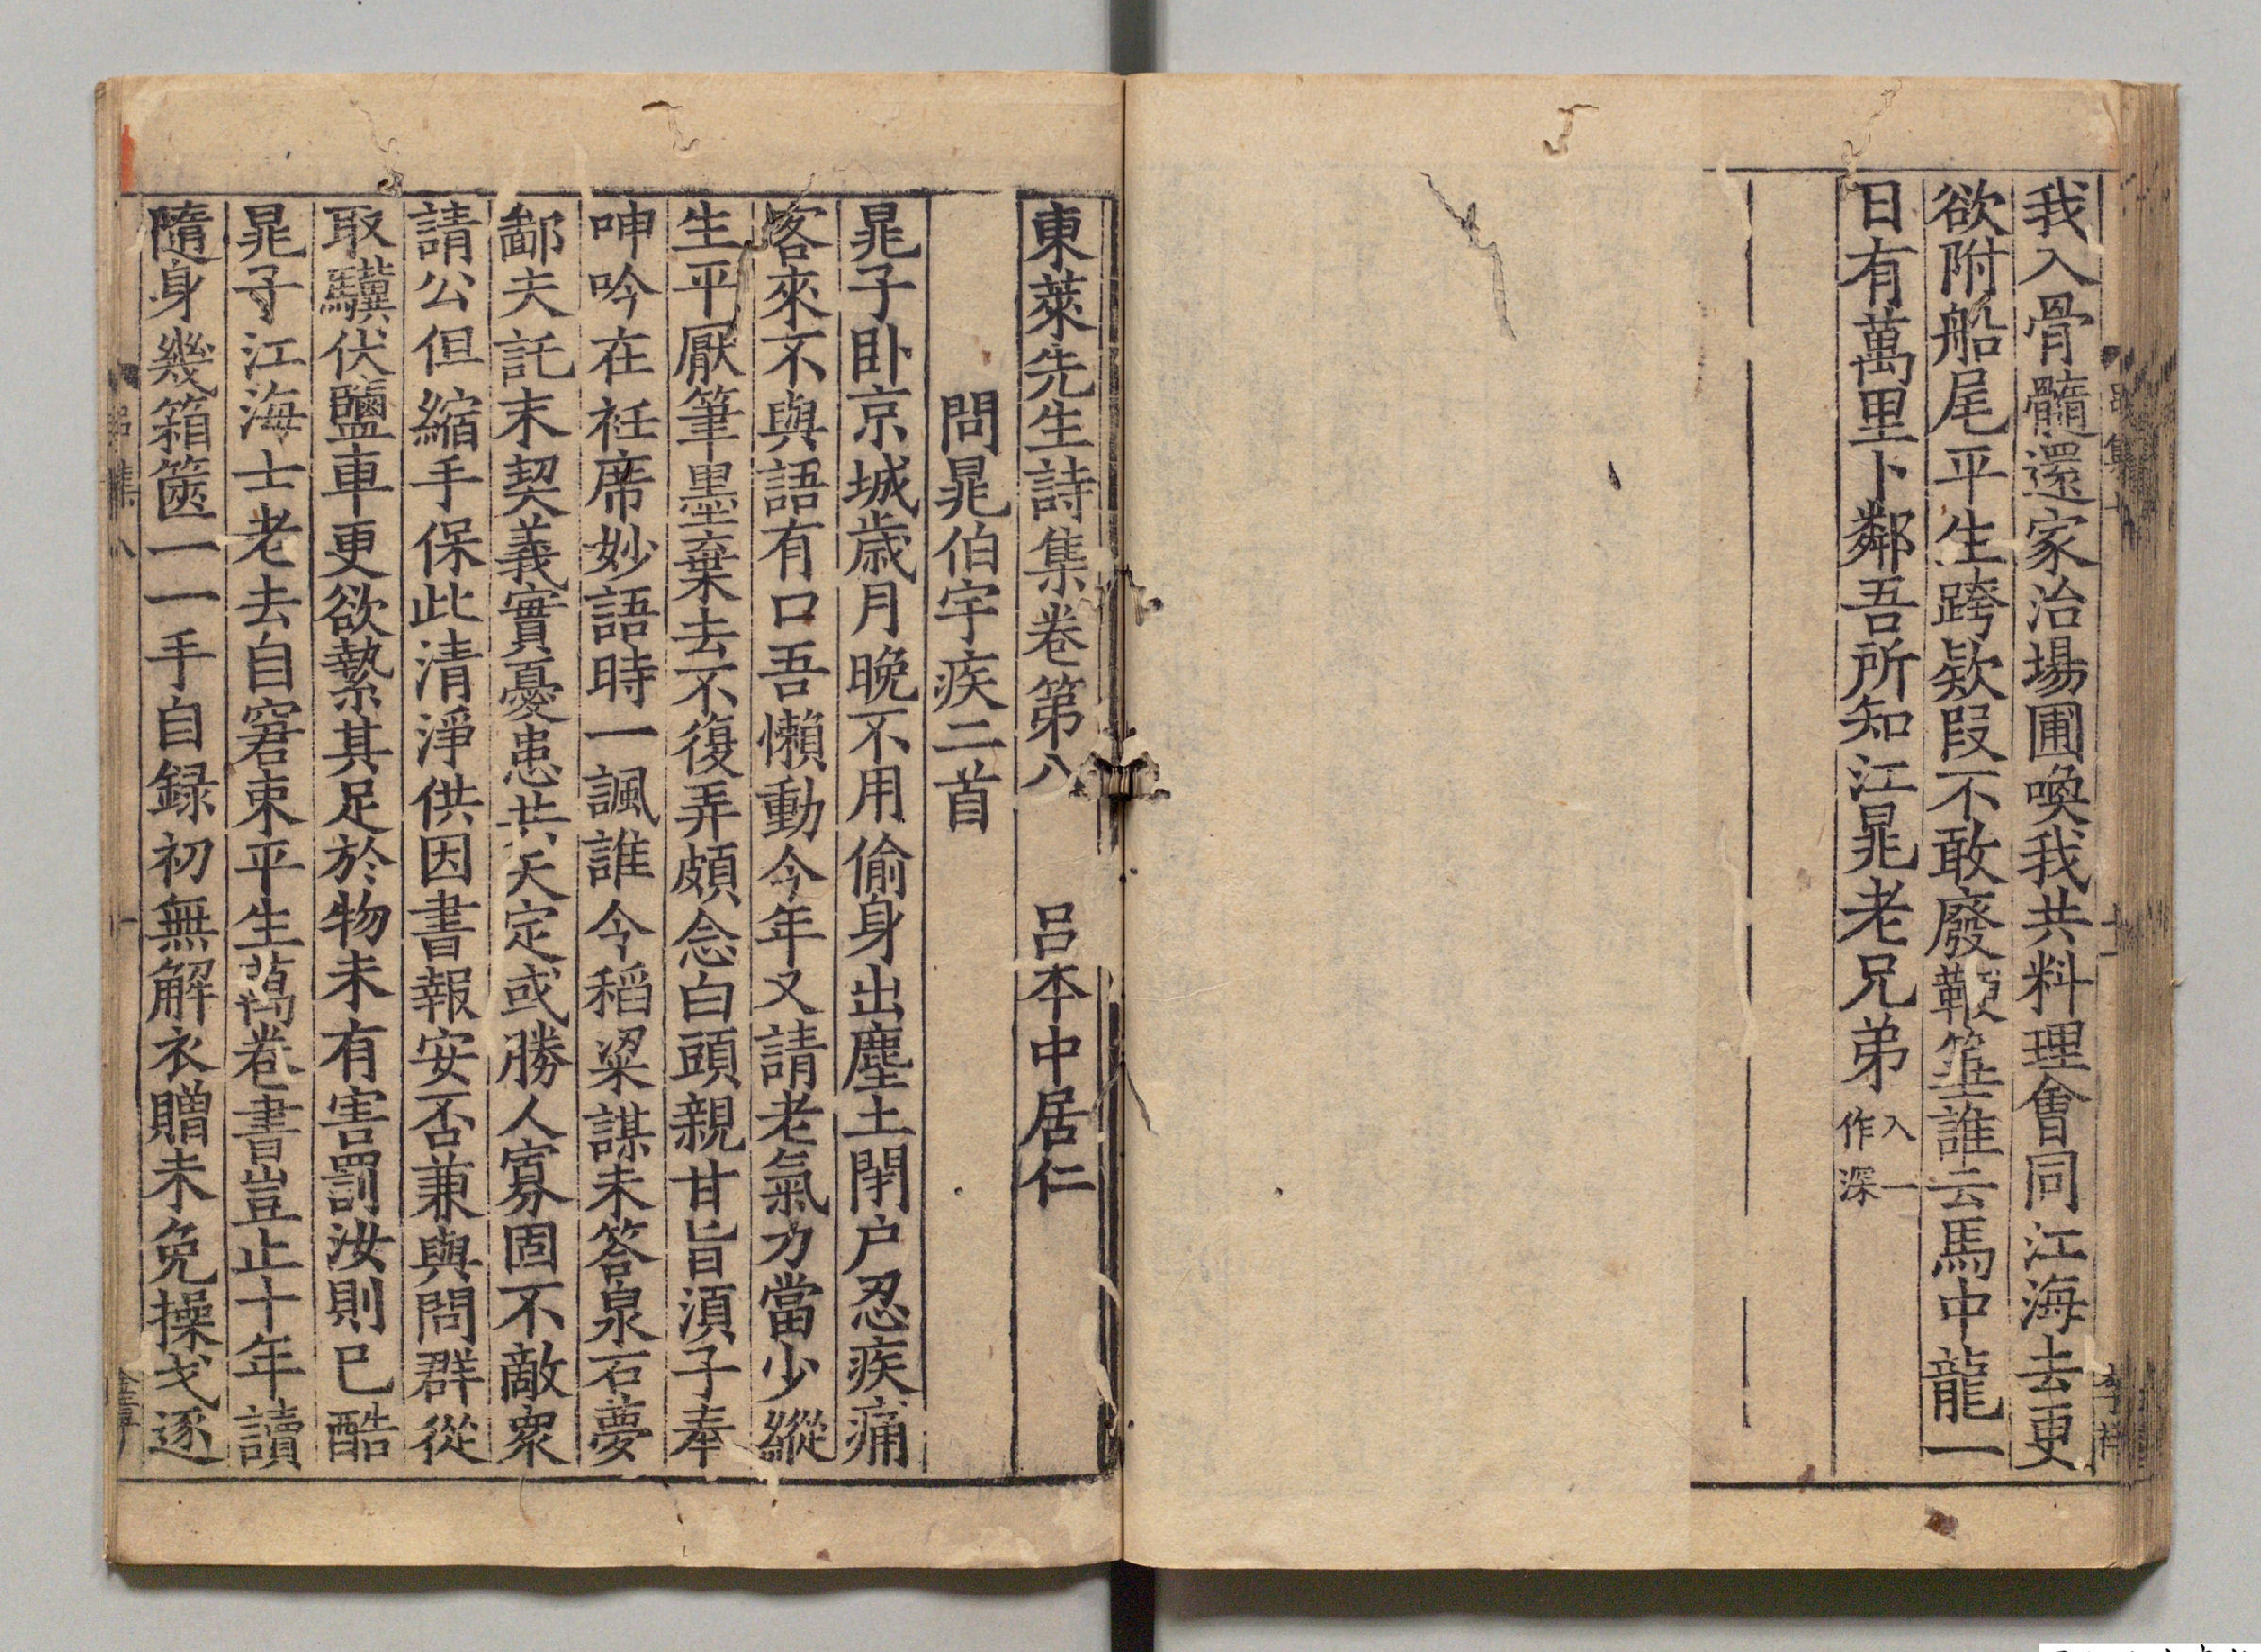 我入骨髓還家治場圃喚我共料理會同江海去更
欲附船尾平生跨欵段不敢廢鞭箠誰云馬中龍一
日有萬里卜鄰吾所知江晁老兄弟入一作深
東萊先生詩集卷第八 呂本中居仁
問晁伯宇疾二首
晁子卧京城歲月晚不用偷身出塵土閉户忍疾痛
客來不與語有口吾懶動今年又請老氣力當少縱
生平厭筆墨棄去不復弄頗念白頭親甘旨須子奉
呻吟在衽席妙語時一諷誰令稻粱謀未答泉石夢
鄙夫託末契義實憂患共天定或勝人寡固不敵衆
請公但縮手保此清淨供因書報安否兼與問群從
取驥伏鹽車更欲縶其足於物未有害罰汝則已酷
晁子江海士老去自窘束平生萬卷書豈止十年讀
隨身幾箱篋一一手自録初無解衣贈未免操戈逐
吕集八
一